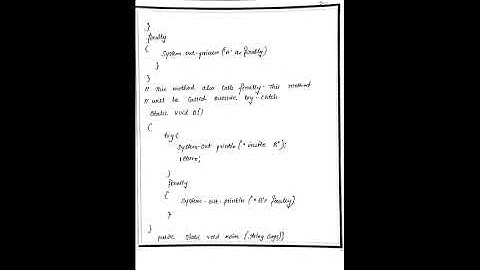 }
finally
{
System.out.println("A's finally)
}
}
// This method also calls finally. This method
// will be called outside try-catch.
static void B()
{
try{
System.out.println("inside B");
return;
}
finally
{
System.out.println("B's finally)
}
}
public static void main (String args[])